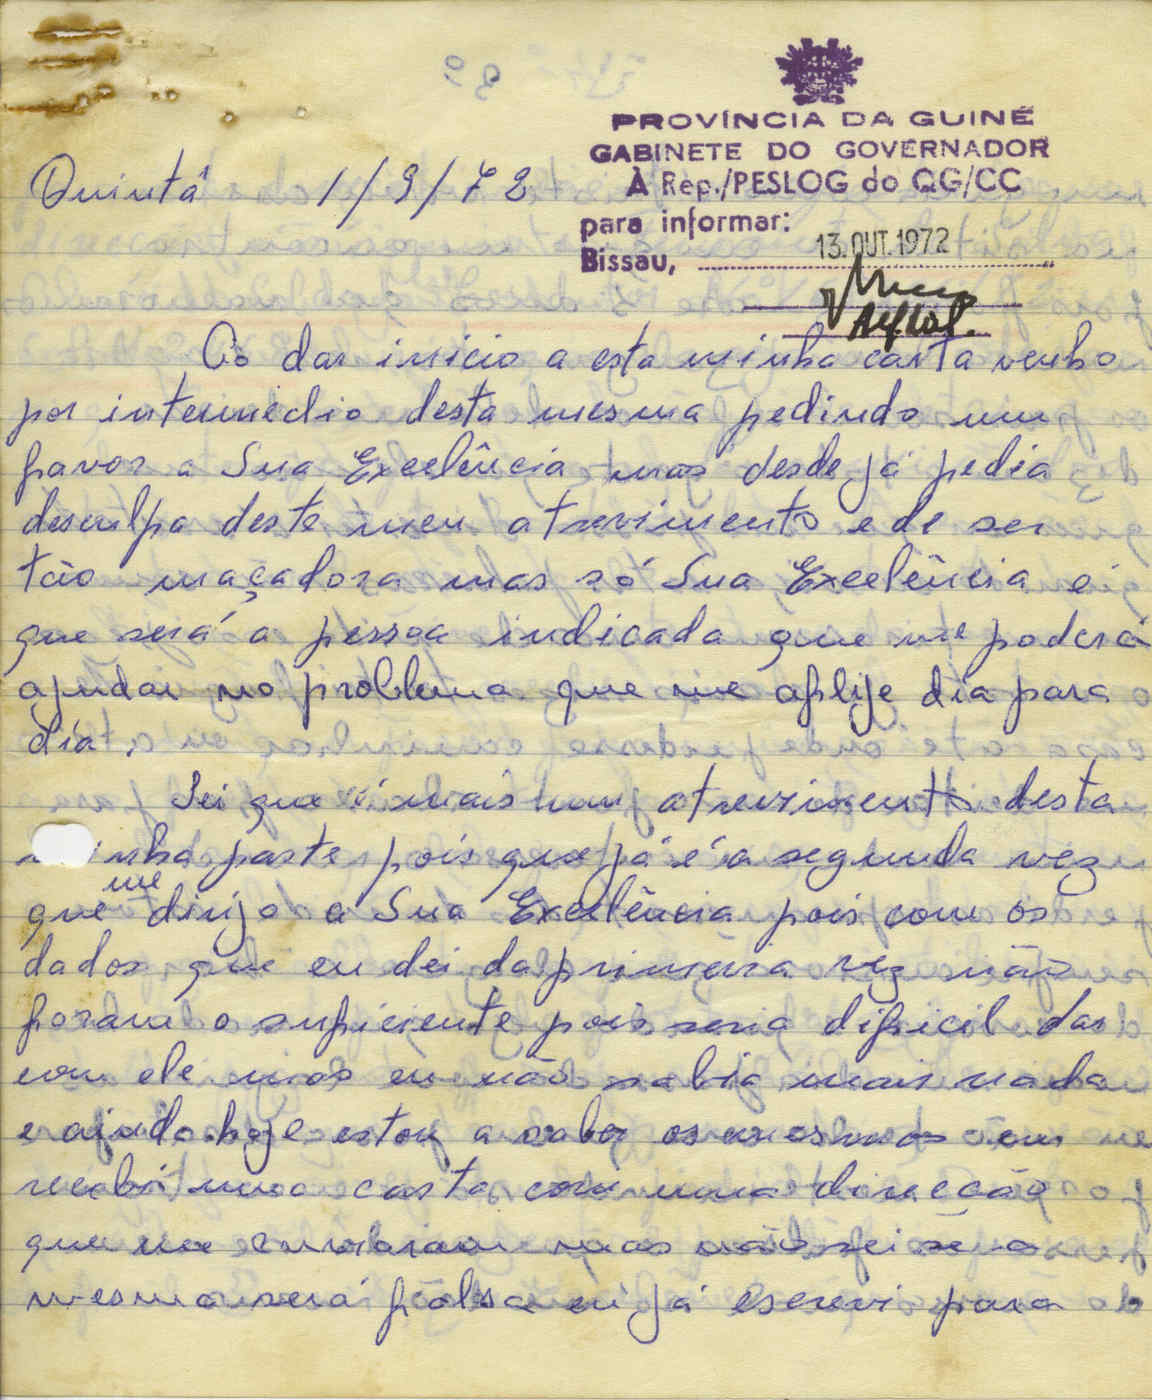 PROVÍNCIA DA GUINÉ
GABINETE DO GOVERNADOR
À Rep./PESLOG do QG/CC
para informar:
Bissau, 13. OUT. 1972
Quintã 1/9/72
Ao dar inicio a esta minha carta venho
por intermedio desta mesma pedindo um
favor a Sua Excelência mas desde já pedia
desculpa deste meu atrevimento e de ser
tão maçadora mas só Sua Excelência é
que será a pessoa indicada que me poderá
ajudar no problema que me aflije dia para
dia.
Sei que é mais um atrevimento desta
minha parte pois que já é a segunda vez
que me dirijo a Sua Excelência pois com os
dados que eu dei da primeira vez não
foram o suficiente pois seria dificil dar
com ele mas eu não sabia mais nada
e ainda hoje estou a saber os mesmos eu
recebi uma carta com uma direcção
que me enviaram mas não sei se a
mesma será falsa eu já escrevi para